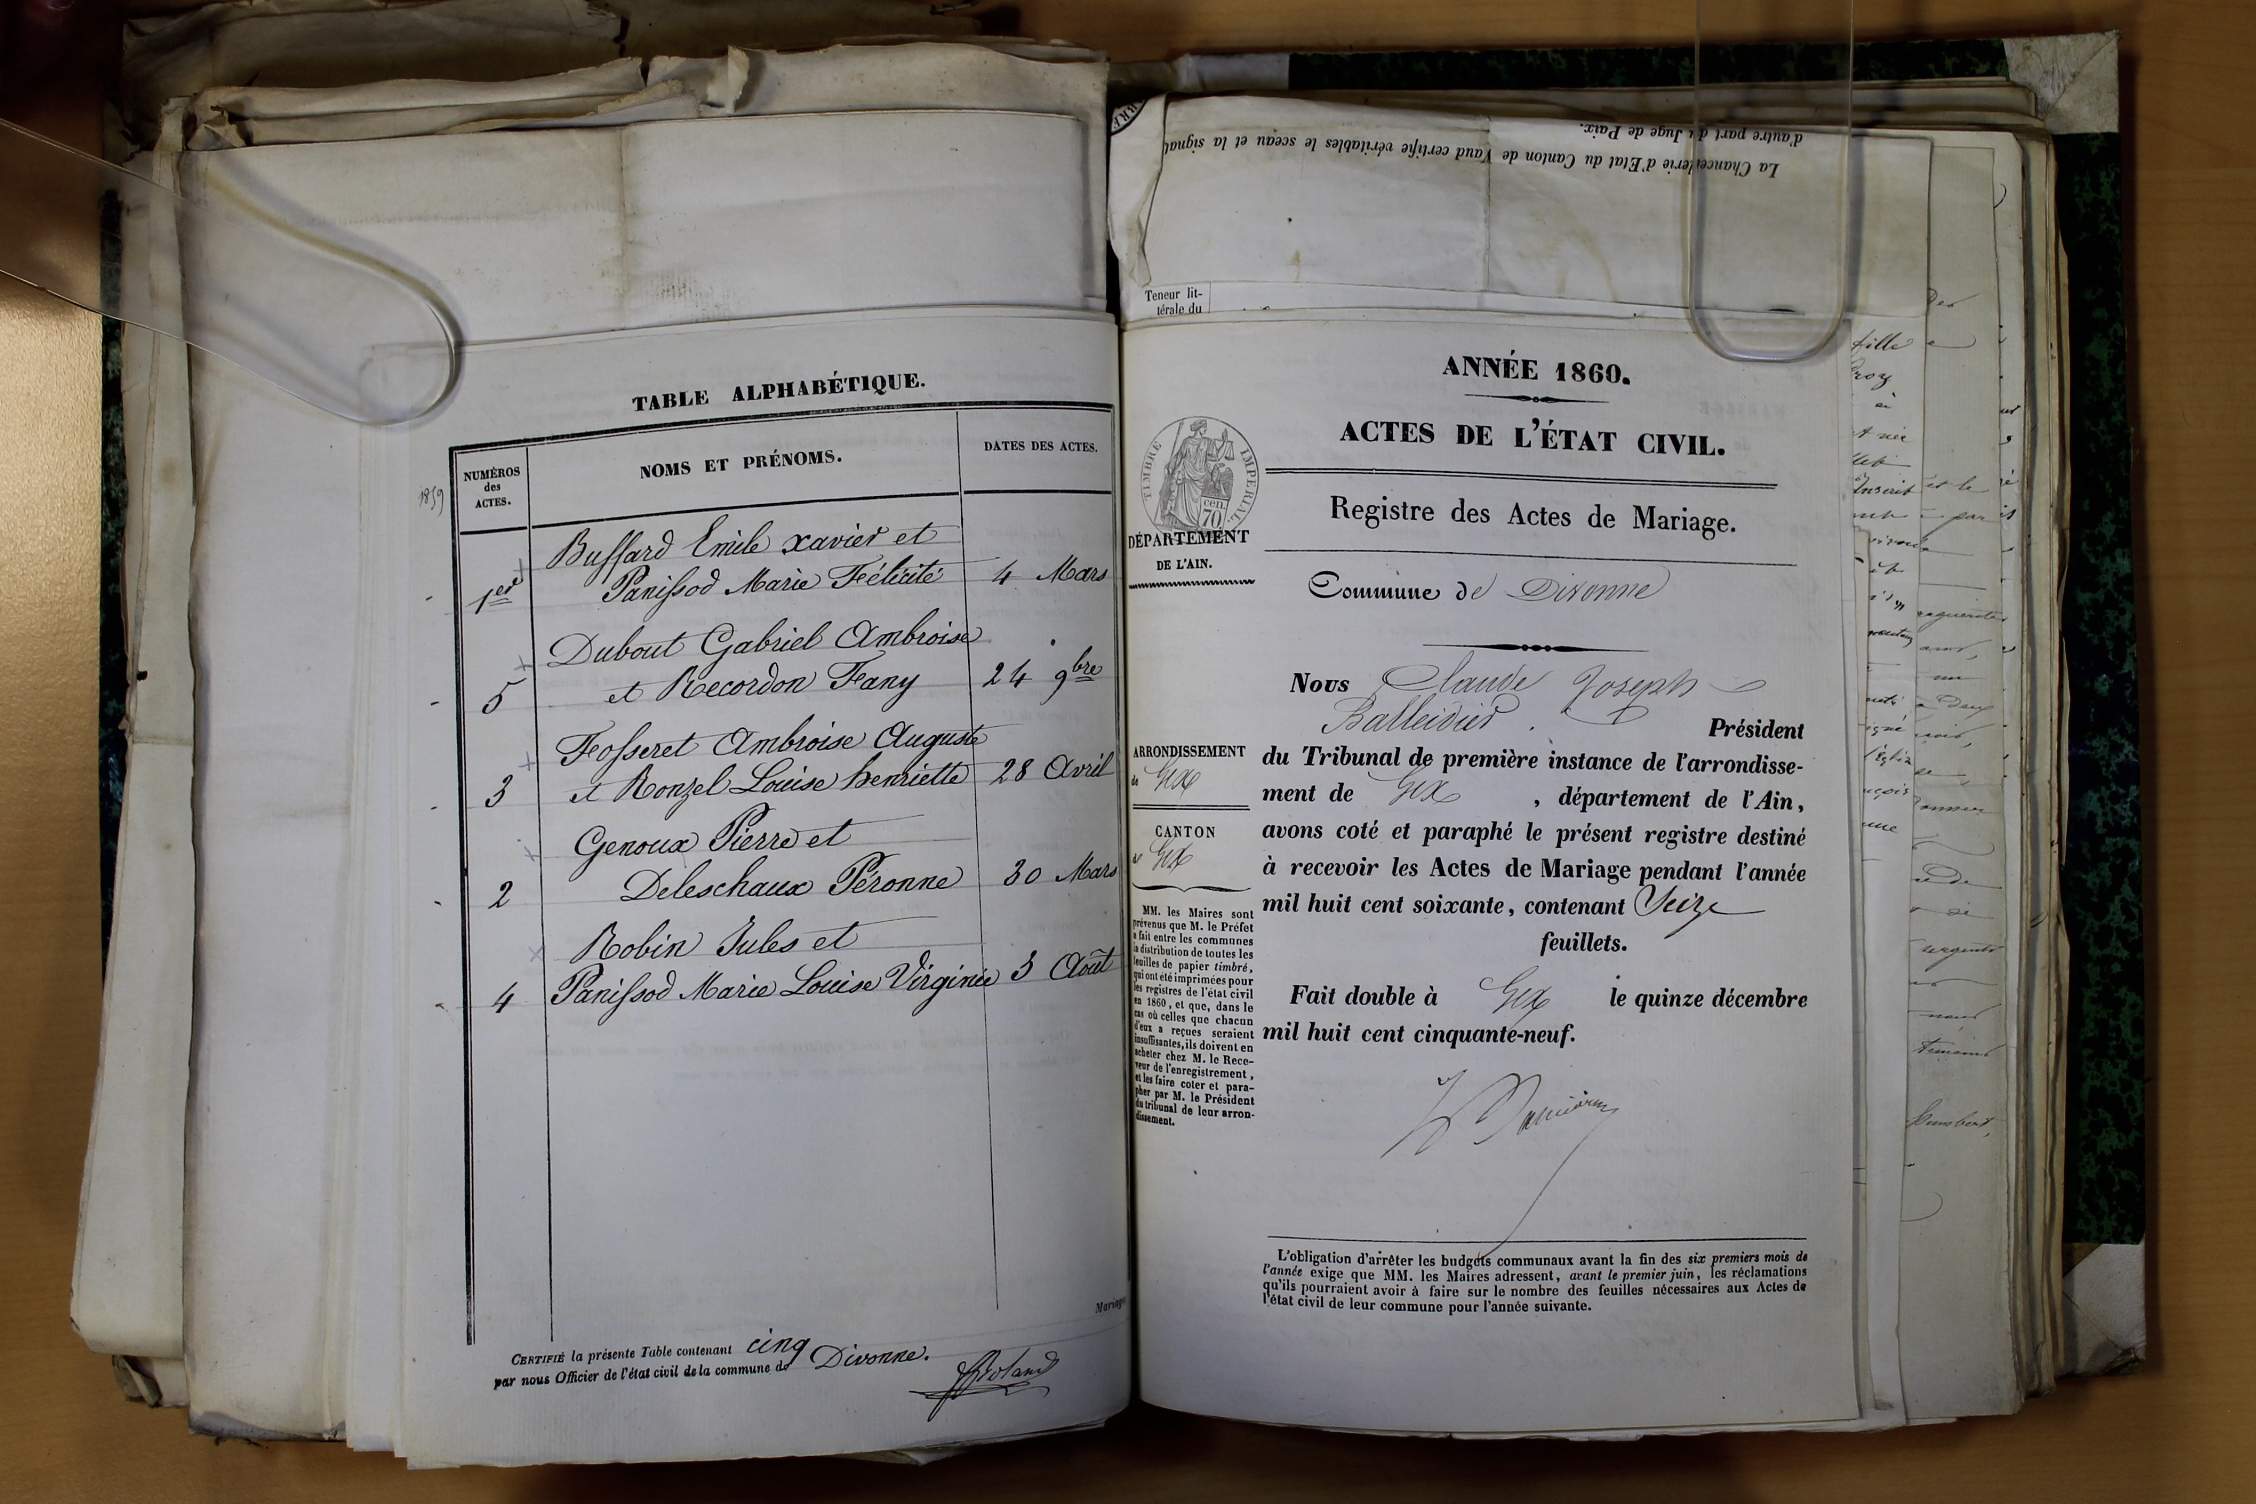 TABLE ALPHABÉTIQUE.
NUMÉROS
des
ACTES.
NOMS ET PRÉNOMS.
DATES DES ACTES.
1859
Buffard Emile xavier et
1er Panissod Marie Félicité 4 Mars
Dubout Gabriel Ambroise
5 et Recordon Fany 24 9bre
Fosseret Ambroise Auguste
3 et Ronzel Louise henriette 28 Avril
Genoux Pierre et
2 Deleschaux Péronne 30 Mars
Robin Jules et
4 Panissod Marie Louise Virginie 3 Août
Mariage
CERTIFIÉ la présente Table contenant cinq
par nous Officier de l'état civil de la commune de Divonne.
d'autre part du Juge de Paix.
La Chancellerie d'Etat du Canton de Vaud certifie véritables le sceau et la signat
Teneur lit-
térale du
ANNÉE 1860.
ACTES DE L'ÉTAT CIVIL.
TIMBRE IMPÉRIAL
cen.
70
DÉPARTEMENT
DE L'AIN.
Registre des Actes de Mariage.
Commune de Divonne
Nous Claude Joseph
Balleidier Président
du Tribunal de première instance de l'arrondisse-
ment de Gex, département de l'Ain,
avons coté et paraphé le présent registre destiné
à recevoir les Actes de Mariage pendant l'année
mil huit cent soixante, contenant Seize
feuillets.
Fait double à Gex le quinze décembre
mil huit cent cinquante-neuf.
ARRONDISSEMENT
de Gex
CANTON
de Gex
MM. les Maires sont
prévenus que M. le Préfet
a fait entre les communes
la distribution de toutes les
feuilles de papier timbré,
qui ont été imprimées pour
les registres de l'état civil
en 1860, et que, dans le
cas où celles que chacun
d'eux a reçues seraient
insuffisantes, ils doivent en
acheter chez M. le Rece-
veur de l'enregistrement,
et les faire coter et para-
pher par M. le Président
du tribunal de leur arron-
dissement.
L'obligation d'arrêter les budgets communaux avant la fin des six premiers mois de
l'année exige que MM. les Maires adressent, avant le premier juin, les réclamations
qu'ils pourraient avoir à faire sur le nombre des feuilles nécessaires aux Actes de
l'état civil de leur commune pour l'année suivante.